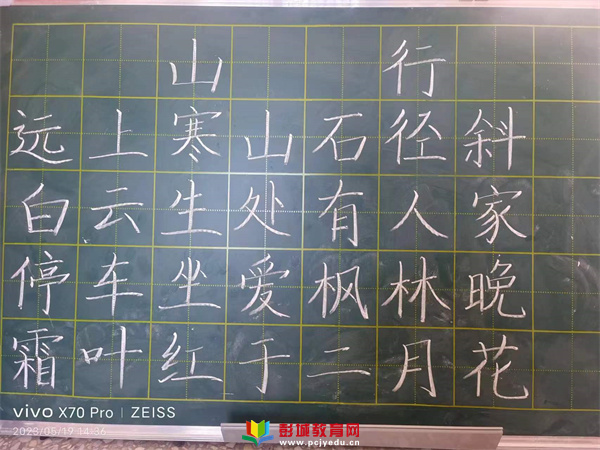 山 行
远上寒山石径斜
白云生处有人家
停车坐爱枫林晚
霜叶红于二月花
vivo X70 Pro | ZEISS
2023/05/19 14:36
彭城教育网
www.pcjyedu.cn